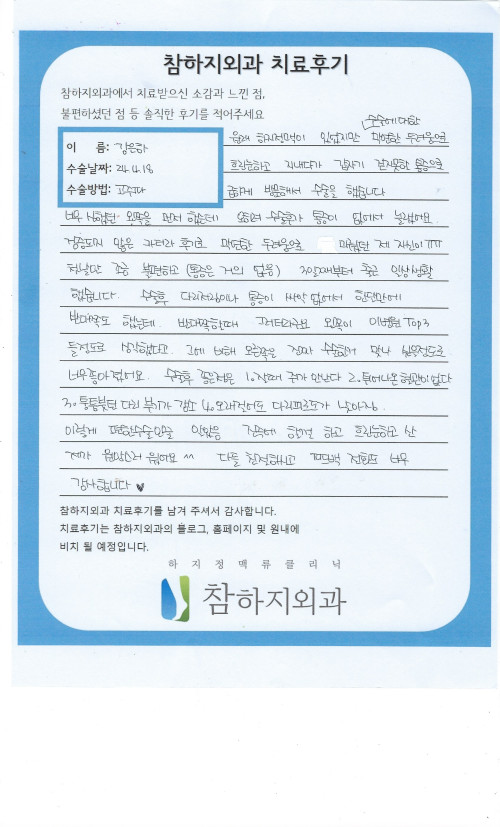 참하지외과 치료후기
참하지외과에서 치료받으신 소감과 느낀 점,
불편하셨던 점 등 솔직한 후기를 적어주세요
이 름:
수술날짜: 24.4.18
수술방법: 고주파
수술에 대한
원래 하지정맥이 있었지만 막연한 두려움으로
흐린눈하고 지내다가 갑자기 걷지못한 통증으로
급하게 방문해서 수술을 했습니다
너무 심했던 왼쪽을 먼저 했는데 오히려 수술후가 통증이 없어서 놀랬어요.
검증되지 않은 후기로 막연한 두려움으로 미뤘던 제 자신이 ㅠㅠ
첫날만 조금 불편하고 (통증은 거의 없음) 3일째부터 좋은 일상생활
했습니다. 수술후 다리저림이나 통증이 싸악 없어서 한달만에
반대쪽도 했는데. 반대쪽할때 왼쪽이 Top3
들정도로 심각했다고. 그에 비해 오른쪽은 정말 수술한거 맞나 싶을정도로
너무좋아졌어요. 수술후 좋은점은 1. 2. 튀어나온 혈관이 없다
3. 퉁퉁붓던 다리 붓기가 감소 4. 오래걸어도 다리피로도가 낮아짐.
이렇게 편한수술인줄 알았음 진작에 할걸 하고 흐린눈하고 산
제가 원망스러웠어요 ^^ 다들 친절하시고 너무
감사합니다 ♥
참하지외과 치료후기를 남겨 주셔서 감사합니다.
치료후기는 참하지외과의 블로그, 홈페이지 및 원내에
비치 될 예정입니다.
하지정맥류클리닉
참하지외과